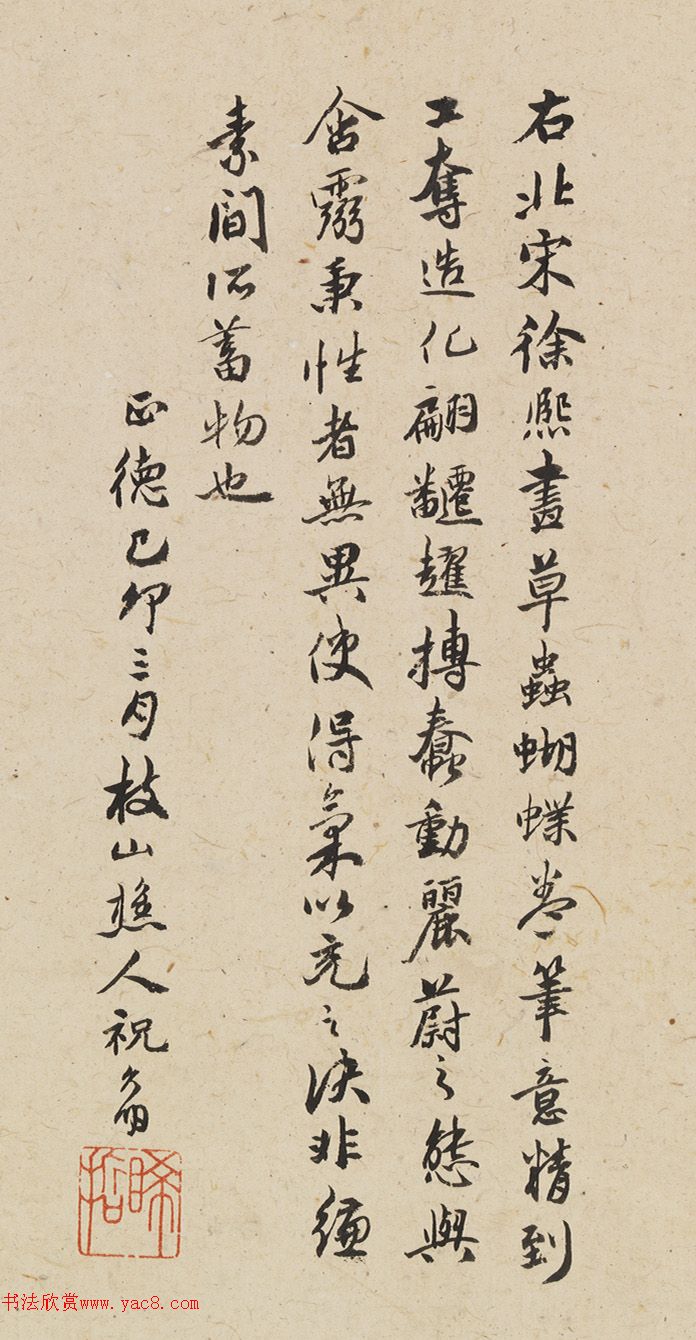 右北宋徐熙畫草蟲蝴蝶卷筆意精到
工奪造化翩趯搏蠢動麗蔚之態與
含靈秉性者無異使得氣以充之決非縑
素間所蓄物也
正德己卯三月枝山樵人祝允明
晞哲
书法欣赏www.yac8.com